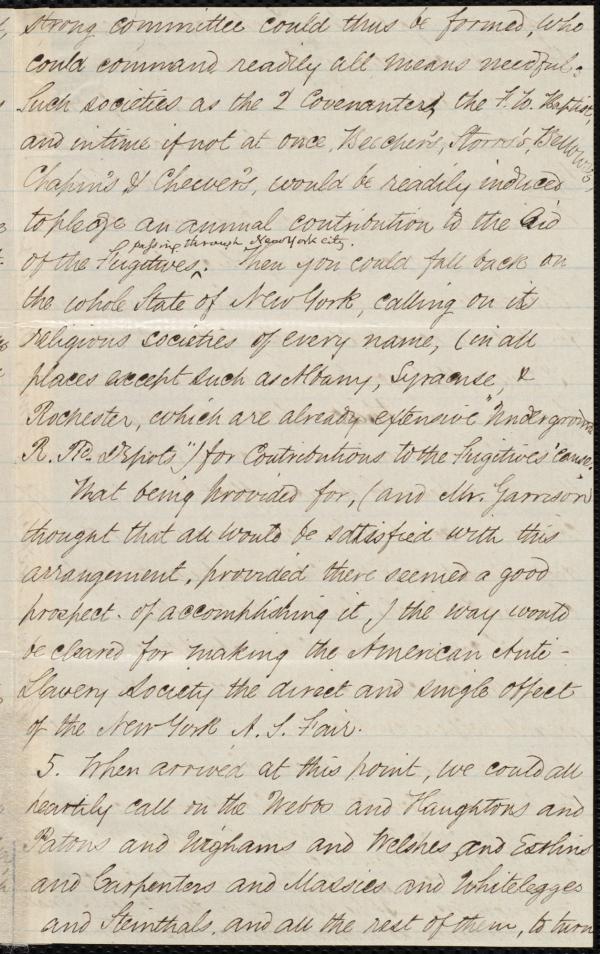 strong committee could thus be formed, who
could command readily all means needful.
Such societies as the 2 Covenanters, the F. W. Baptist,
and in time if not at once, Beecher's, Storrs's, Bellows's,
Chapin's & Cheever's, would be readily induced
to pledge an annual contribution to the Aid
passing through New York city.
of the Fugitives. Then you could fall back on
the whole State of New York, calling on its
religious societies of every name, (in all
places except such as Albany, Syracuse, &
Rochester, which are already extensive "Underground
R. Rd. Depots") for Contributions to the Fugitives' cause.
That being provided for, (and Mr. Garrison
thought that all would be satisfied with this
arrangement, provided there seemed a good
prospect of accomplishing it) the way would
be cleared for making the American Anti-
Slavery Society the direct and single object
of the New York A. S. Fair.
5. When arrived at this point, we could all
heartily call on the Webbs and Haughtons and
Patons and Wighams and Welshes and Estlins
and Carpenters and Massies and Whitelegges
and Steinthals, and all the rest of them, to turn